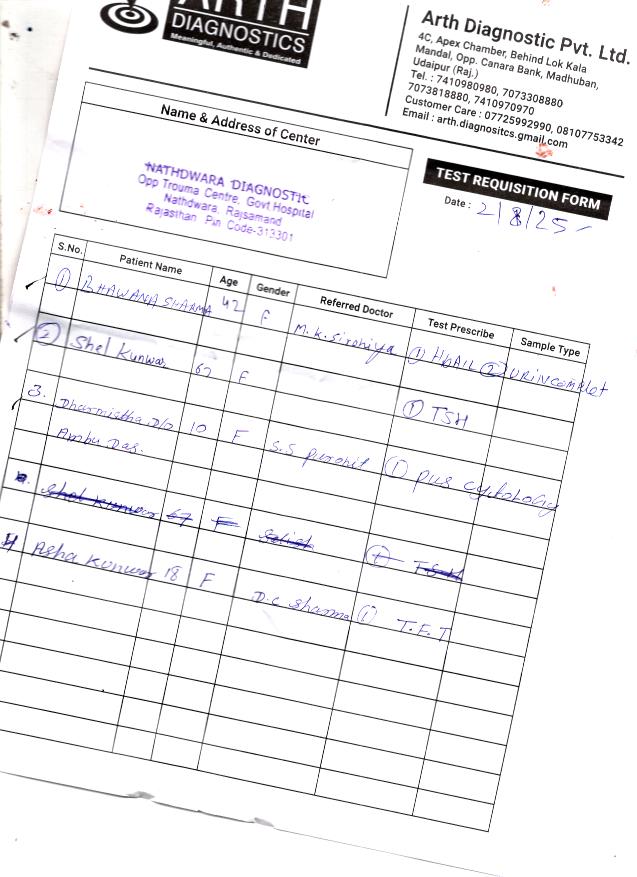 ARTH
DIAGNOSTICS
Meaningful, Authentic & Dedicated
Arth Diagnostic Pvt. Ltd.
4C, Apex Chamber, Behind Lok Kala
Mandal, Opp. Canara Bank, Madhuban,
Udaipur (Raj.)
Tel. : 7410980980, 7073308880
7073818880, 7410970970
Customer Care : 07725992990, 08107753342
Email : arth.diagnositcs.gmail.com
Name & Address of Center
NATHDWARA DIAGNOSTIC
Opp Trouma Centre, Govt Hospital
Nathdwara, Rajsamand
Rajasthan Pin Code-313301
TEST REQUISITION FORM
Date : 2/8/25
S.No. Patient Name Age Gender Referred Doctor Test Prescribe Sample Type
① BHAWANA SHARMA 42 F M.K. Sirohiya ① HbA1L ② URINCOMPLET
② Shel Kunwar 67 F ① TSH
3. Dharmistha D/o 10 F S.S purohit ① pus cytology
Ambu Das.
Shel Kunwar 67 F TSH
4 Asha Kunwar 18 F D.C Sharma ① T.F.T